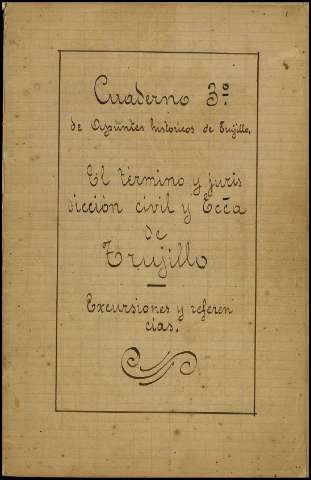 Cuaderno 3º.
de Apuntes históricos de Trujillo.
El término y juris
dicción civil y Ecca
de
Trujillo
Excursiones y referen
cias.